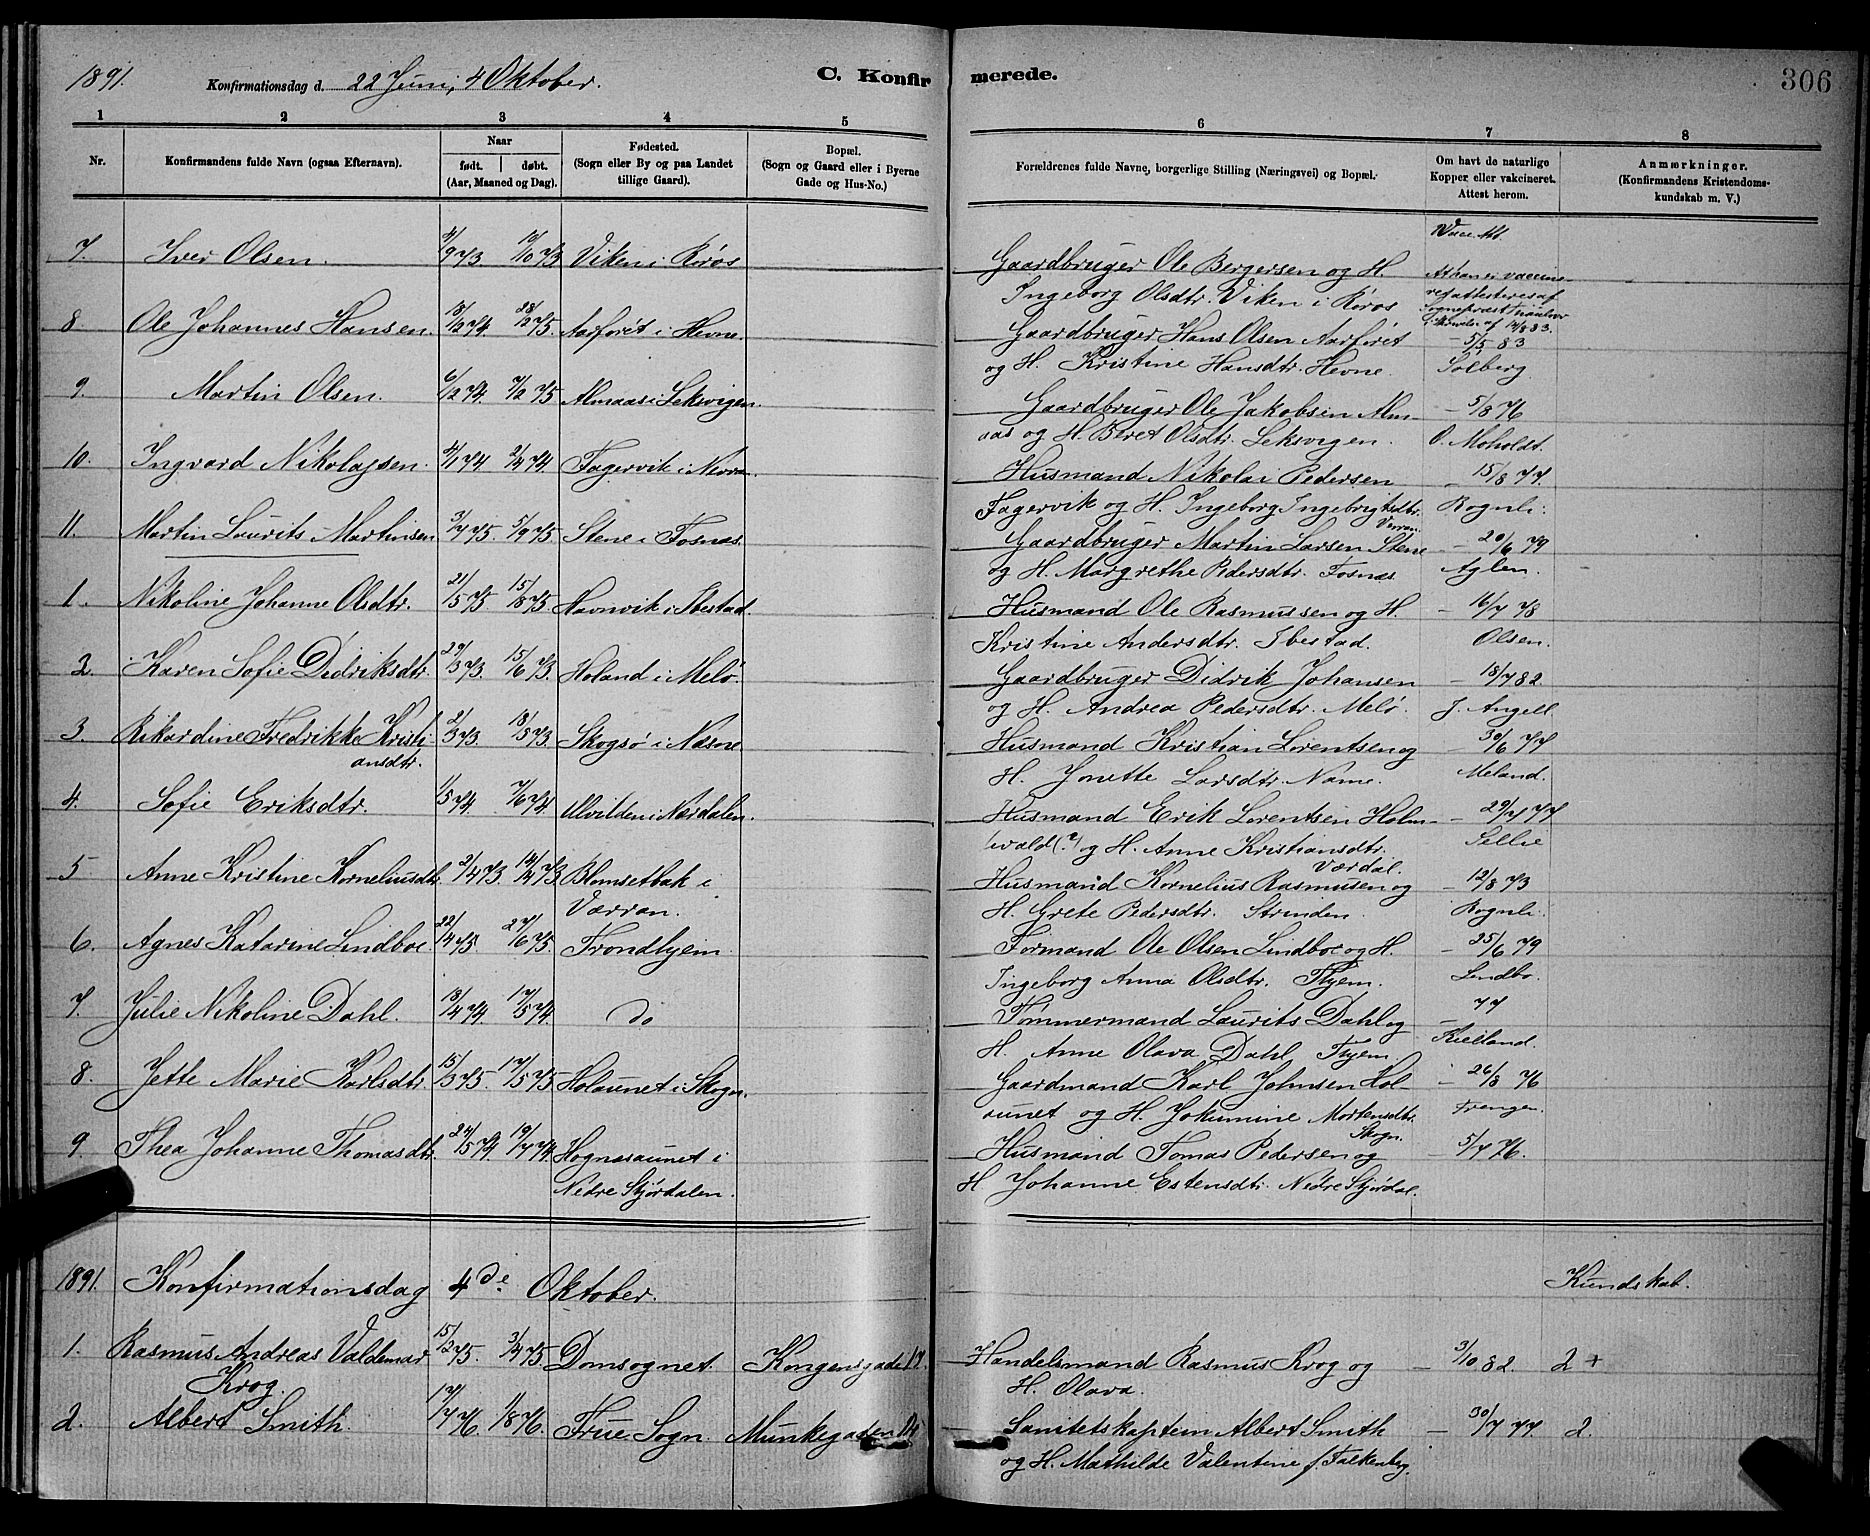 1891. Konfirmationsdag d. 22 Juni, 4 Oktober. C. Konfirmerede. 306
1 2 3 4 5 6 7 8
Nr. Konfirmandens fulde Navn (ogsaa Efternavn). Naar født. døbt. (Aar, Maaned og Dag). Fødested. (Sogn eller By og paa Landet tillige Gaard). Bopæl. (Sogn og Gaard eller i Byerne Gade og Hus-No.) Forældrenes fulde Navne, borgerlige Stilling (Næringsvei) og Bopæl. Om havt de naturlige Kopper eller vakcineret. Attest herom. Anmærkninger. (Konfirmandens Kristendomskundskab m. V.)
7. Iver Olsen. Viken i Røros
Gaardbruger Ole Bergersen og H.
Ingeborg Olsdtr. Viken i Røros
8. Ole Johannes Hansen. Aarforet i Hevne.
Gaardbruger Hans Olsen Aarforet - 5/5 83
og H. Kristine Hansdtr. Hevne. Solberg
9. Martin Olsen. 6/12 74. 7/2 75 Almaas i Leksvigen.
Gaardbruger Ole Jakobsen Alm- - 5/8 76
aas og H. Beret Olsdtr. Leksvigen. O. Moholdt.
10. Ingvard Nikolajsen. 2/4 74. Fagervik i
Husmand Nikolai Pedersen - 15/8 77.
Fagervik og H. Ingeborg Ingebrigtsdtr. Rognli.
Værran.
11. Martin Laurits Martinsen 3/7 75. 5/9 75. Stene i Fosnæs.
Gaardbruger Martin Larsen Stene - 20/6 79
og H. Margrethe Pedersdtr. Fosnæs. Aglen.
1. Nikoline Johanne Olsdtr. 21/5 75 15/8 75. Havnvik i Ibestad.
Husmand Ole Rasmussen og H. - 16/7 78
Kristine Andersdtr. Ibestad. Olsen.
2. Karen Sofie Didriksdtr. 29/3 73. 15/6 73. Holand i Melø.
Gaardbruger Didrik Johansen - 18/7 82.
og H. Andrea Pedersdtr. Melø. J. Angell
3. Rikardine Fredrikke Kristi 2/3 73. 18/5 73. Skogsø i Næsne
ansdtr.
Husmand Kristian Lorentsen og - 30/6 77
H. Jonette Larsdtr. Meland.
4. Sofie Eriksdtr. 1/5 74. 7/6 74. Ulvilden i Værdalen.
Husmand Erik Lorentsen Holm- - 29/7 77
wald(?) og H. Anne Kristiansdtr. Sellie
Værdal.
5 Anne Kristine Korneliusdtr. 2/4 73. 14/4 73 Blomsetbak i
Værran.
Husmand Kornelius Rasmusen og - 12/8 73
H. Grete Pedersdtr. Strinden. Rognli.
6. Agnes Katarine Lindboe 22/4 75. 27/6 75. Trondhjem.
Formand Ole Olsen Lindboe og H. - 25/6 79
Ingeborg Anna Olsdtr. Thjem. Lindbo.
7. Julie Nikoline Dahl. 13/4 74. 17/5 74. do
Tømmermand Laurits Dahl og - 77
H. Anne Olava Dahl Thjem. Kielland.
8. Jette Marie Karlsdtr. 15/3 75. 17/5 75 Holaunet i Skogn.
Gaardmand Karl Johnsen Hol- - 26/8 76
aunet og H. Jokumine Mortensdtr. Frengen.
Skogn.
9. Thea Johanne Thomasdtr. 24/5 74. 19/7 74. Hognæsaunet i
Nedre Stjørdalen.
Husmand Tomas Pedersen og - 5/7 76.
H. Johanne Estensdtr. Nedre Stjørdal.
1891. Konfirmationsdag 4de Oktober. Kundskab.
1. Rasmus Andreas Valdemar 15/2 75. 3/4 75 Domsognet. Kongensgade 17. Handelsmand Rasmus Krog og - 3/10 82 2+
Krog. H. Olava.
2. Albert Smith. 17/7 76. 1/8 76. Frue Sogn. Munkegaden 14 Sanitetskaptein Albert Smith - 30/7 77. 2.
og H. Mathilde Valentine f. Falkenberg.